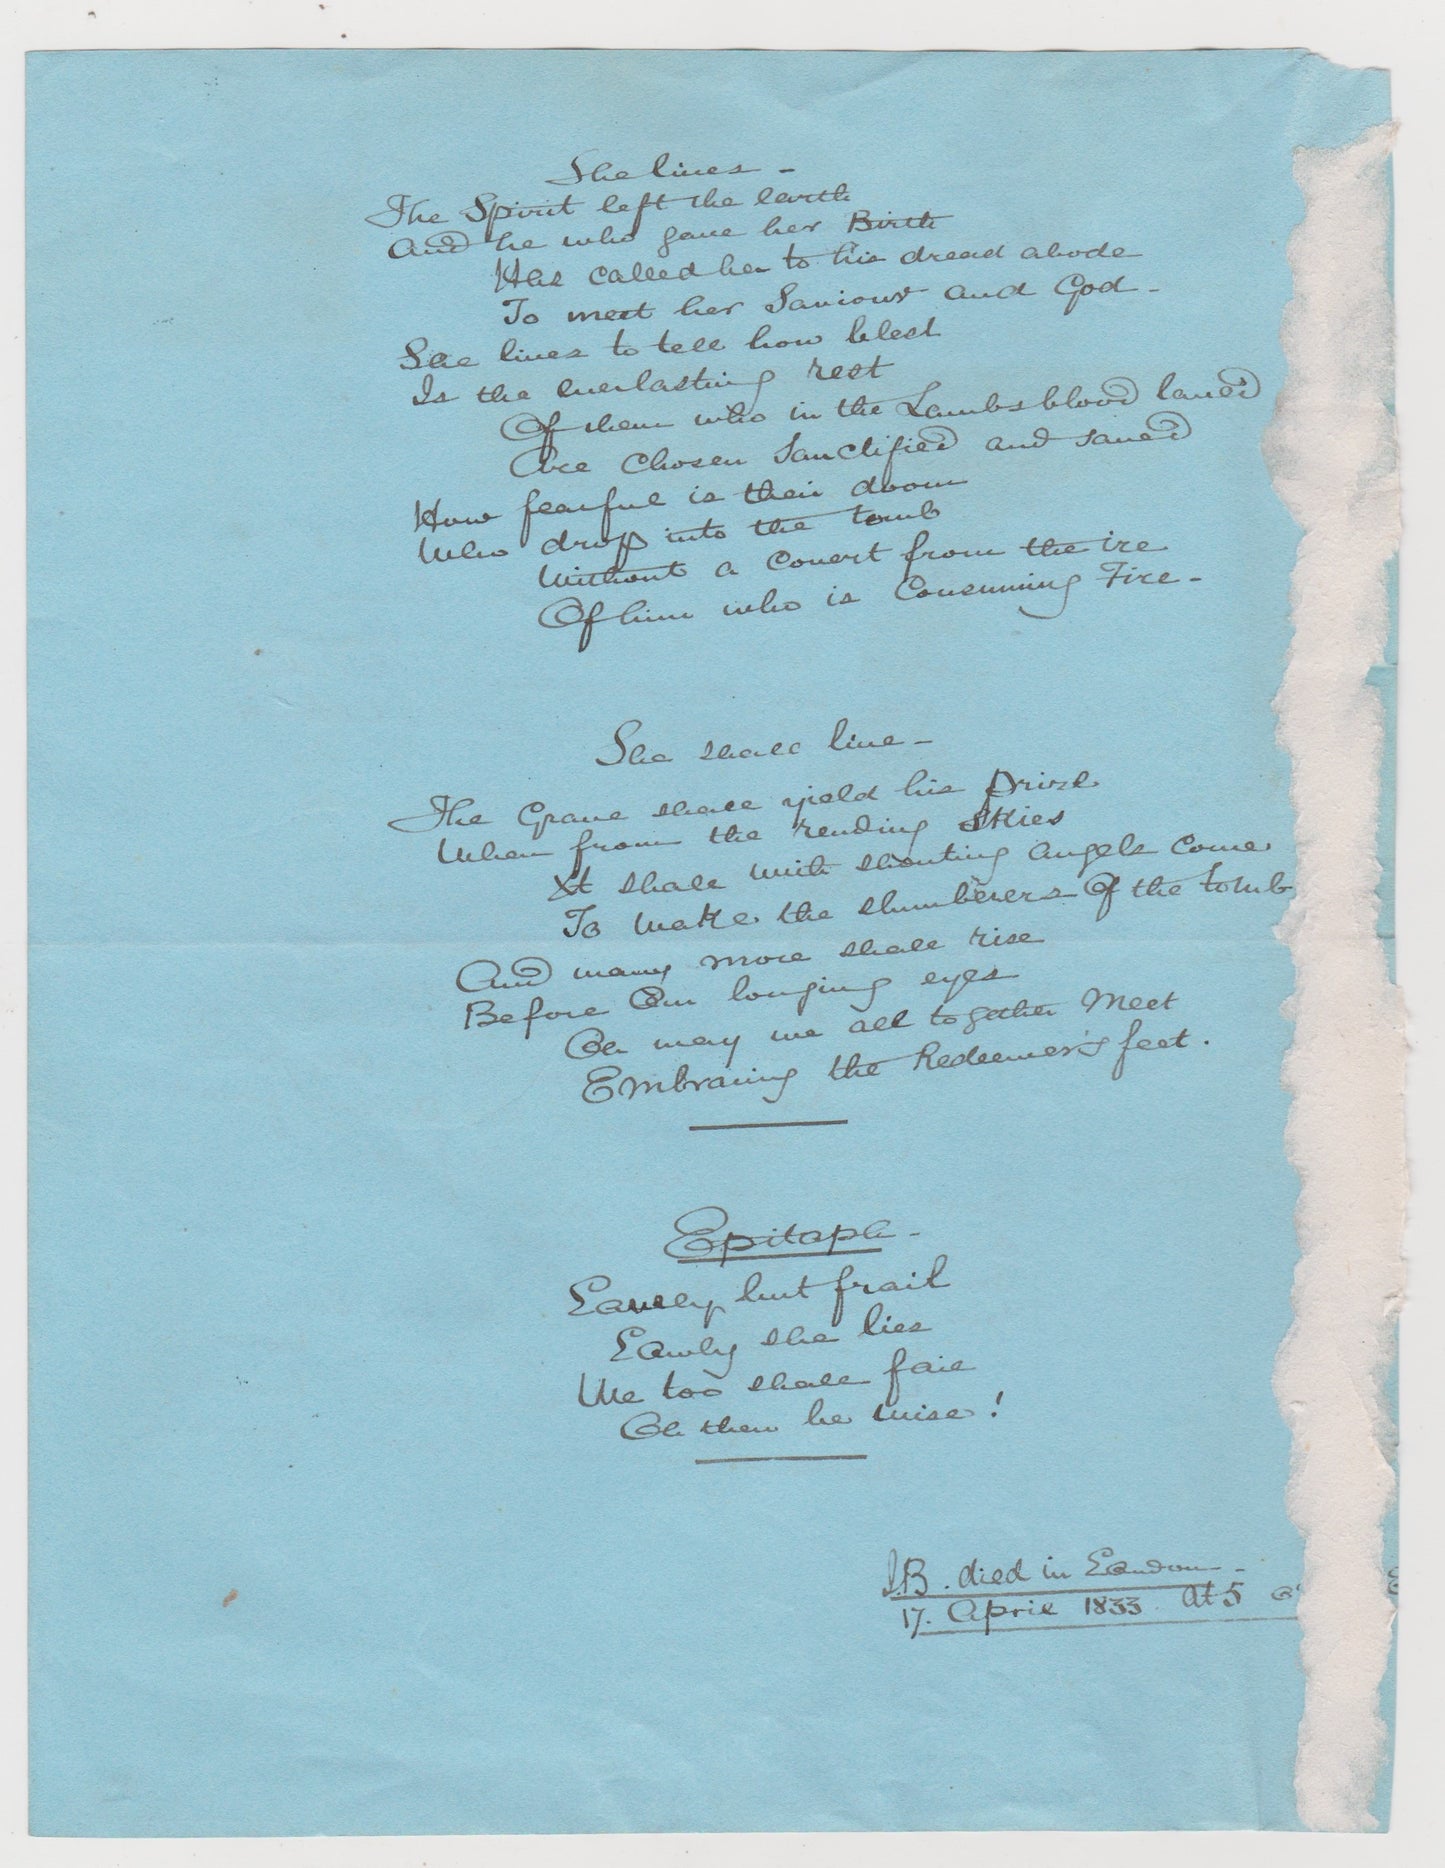 She lives -
The Spirit left the earth
And he who gave her Birth
Has called her to his dread abode
To meet her Saviour and God -
She lives to tell how blest
Is the everlasting rest
Of them who in the Lambs blood laved
Are Chosen Sanctified and saved
How fearful is their doom
Who drop into the tomb
Without a covert from the ire
Of him who is Consuming Fire -
She shall live -
The Grave shall yield his prize
When from the rending Skies
Xt shall with shouting angels come
To wake the slumberers Of the tomb
And many more shall rise
Before Our longing eyes
Oh may we all together Meet
Embracing the Redeemer's feet.
Epitaph -
Lovely but frail
Lowly she lies
We too shall fail
Oh then be wise!
I.B. died in London -
17. April 1833 At 5